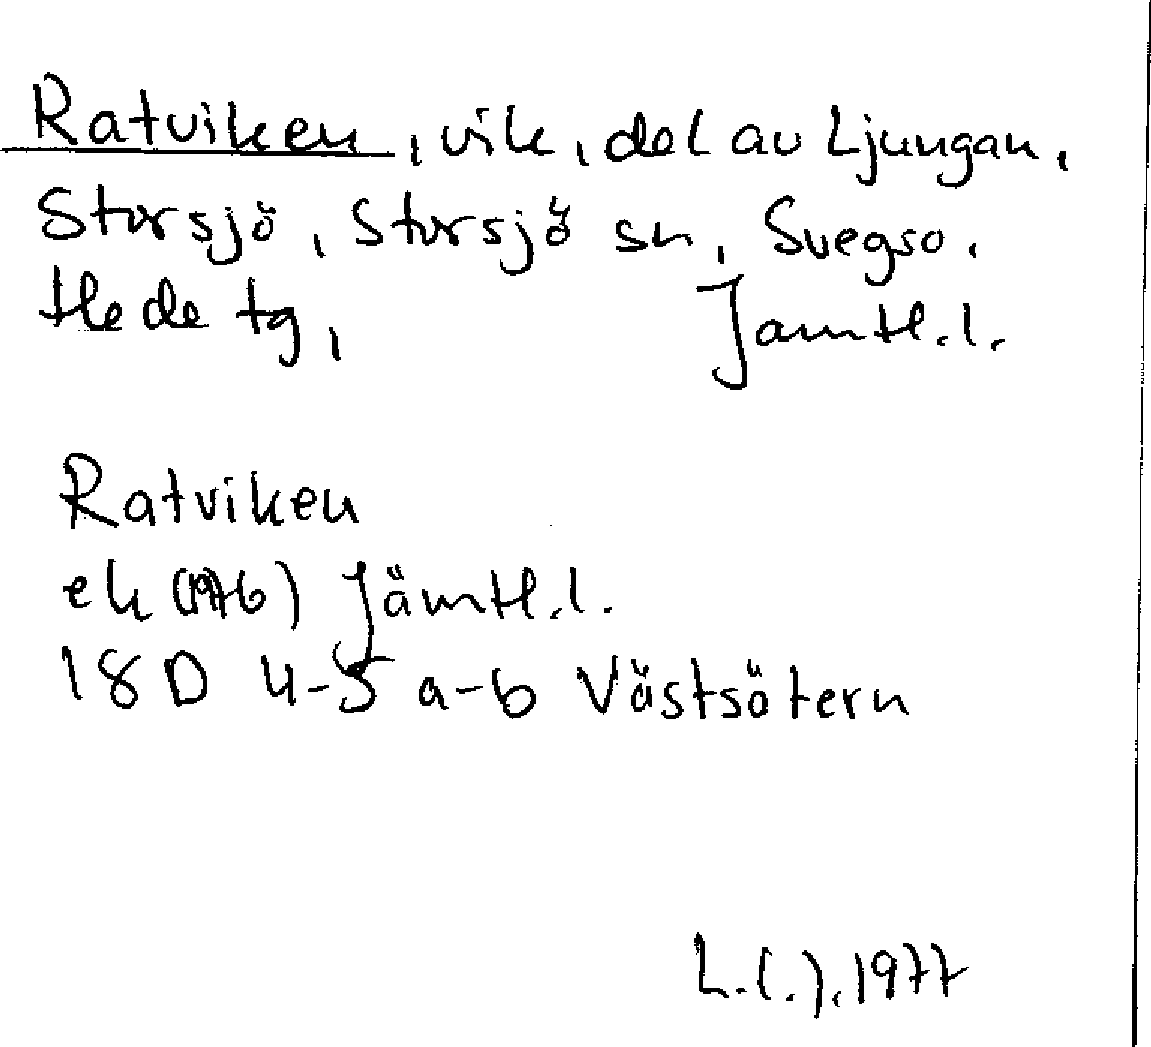 Ratviken, vik, del av Ljungan,
Storsjö, Storsjö sn, Svegso.
Hede tg, Jämtl.l.
Ratviken
ek (1976) Jämtl.l.
18D 4-5 a-b Västsätern
L.(.).1977